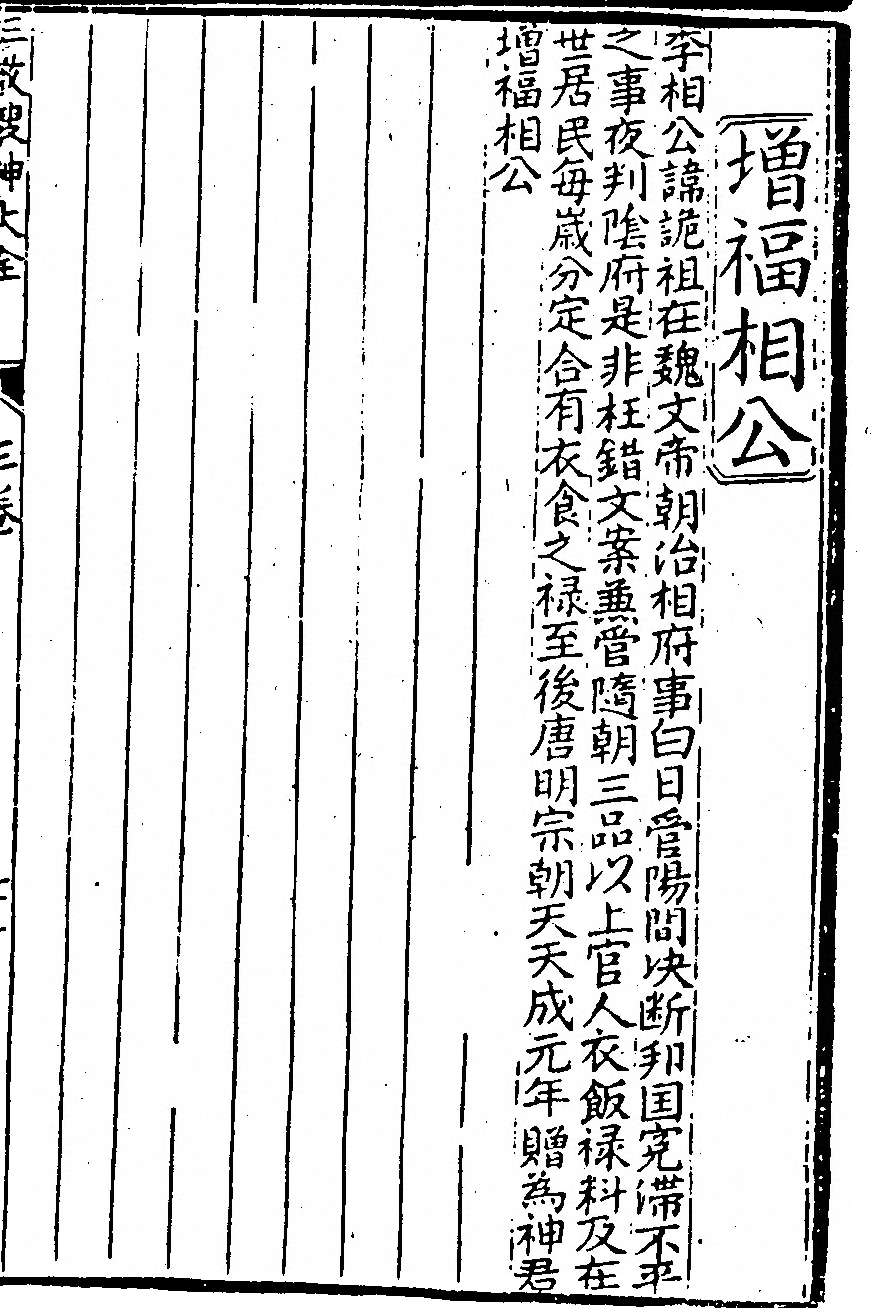 增福相公
李相公諱詭祖在魏文帝朝治相府事白日管陽間决断邦国冤滯不平
之事夜判隂府是非枉錯文案兼管隨朝三品以上官人衣飯禄料及在
世居民每嵗分定合有衣食之禄至後唐明宗朝天天成元年贈為神君
增福相公
三教搜神大全
三卷